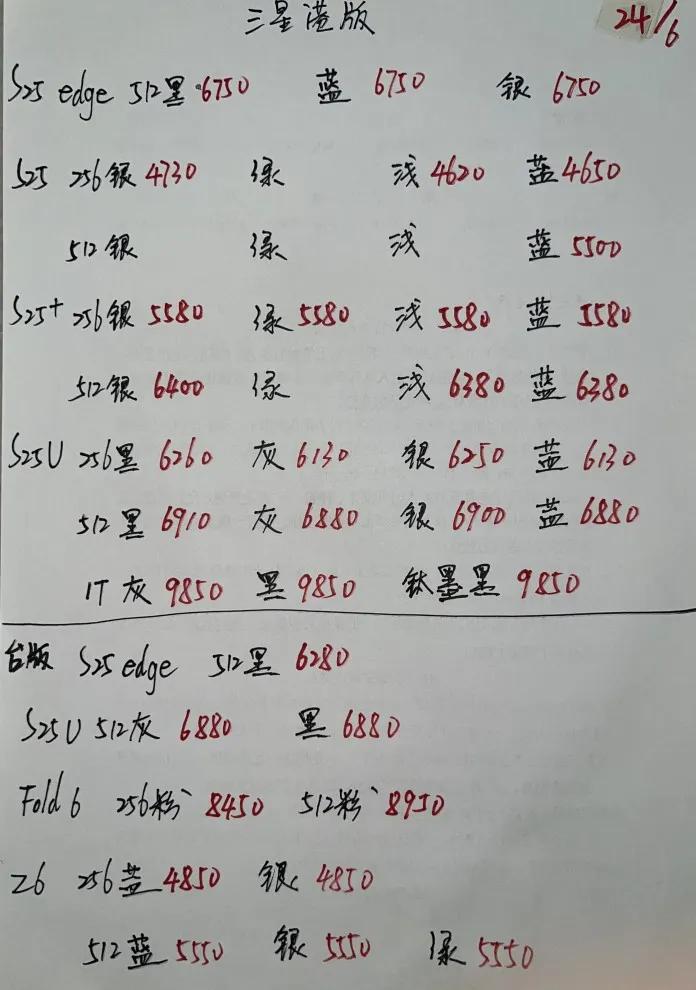 三星港版 24/6
S25 edge 512黑 6750 蓝 6750 银 6750
S25 256银 4730 绿 浅 4620 蓝 4650
512银 绿 浅 蓝 5500
S25+ 256银 5580 绿 5580 浅 5580 蓝 5580
512银 6400 绿 浅 6380 蓝 6380
S25U 256黑 6260 灰 6130 银 6250 蓝 6130
512黑 6910 灰 6880 银 6900 蓝 6880
1T 灰 9850 黑 9850 钛墨黑 9850
台版 S25 edge 512黑 6280
S25U 512灰 6880 黑 6880
Fold 6 256粉 8450 512粉 8950
Z6 256蓝 4850 银 4850
512蓝 5550 银 5550 绿 5550